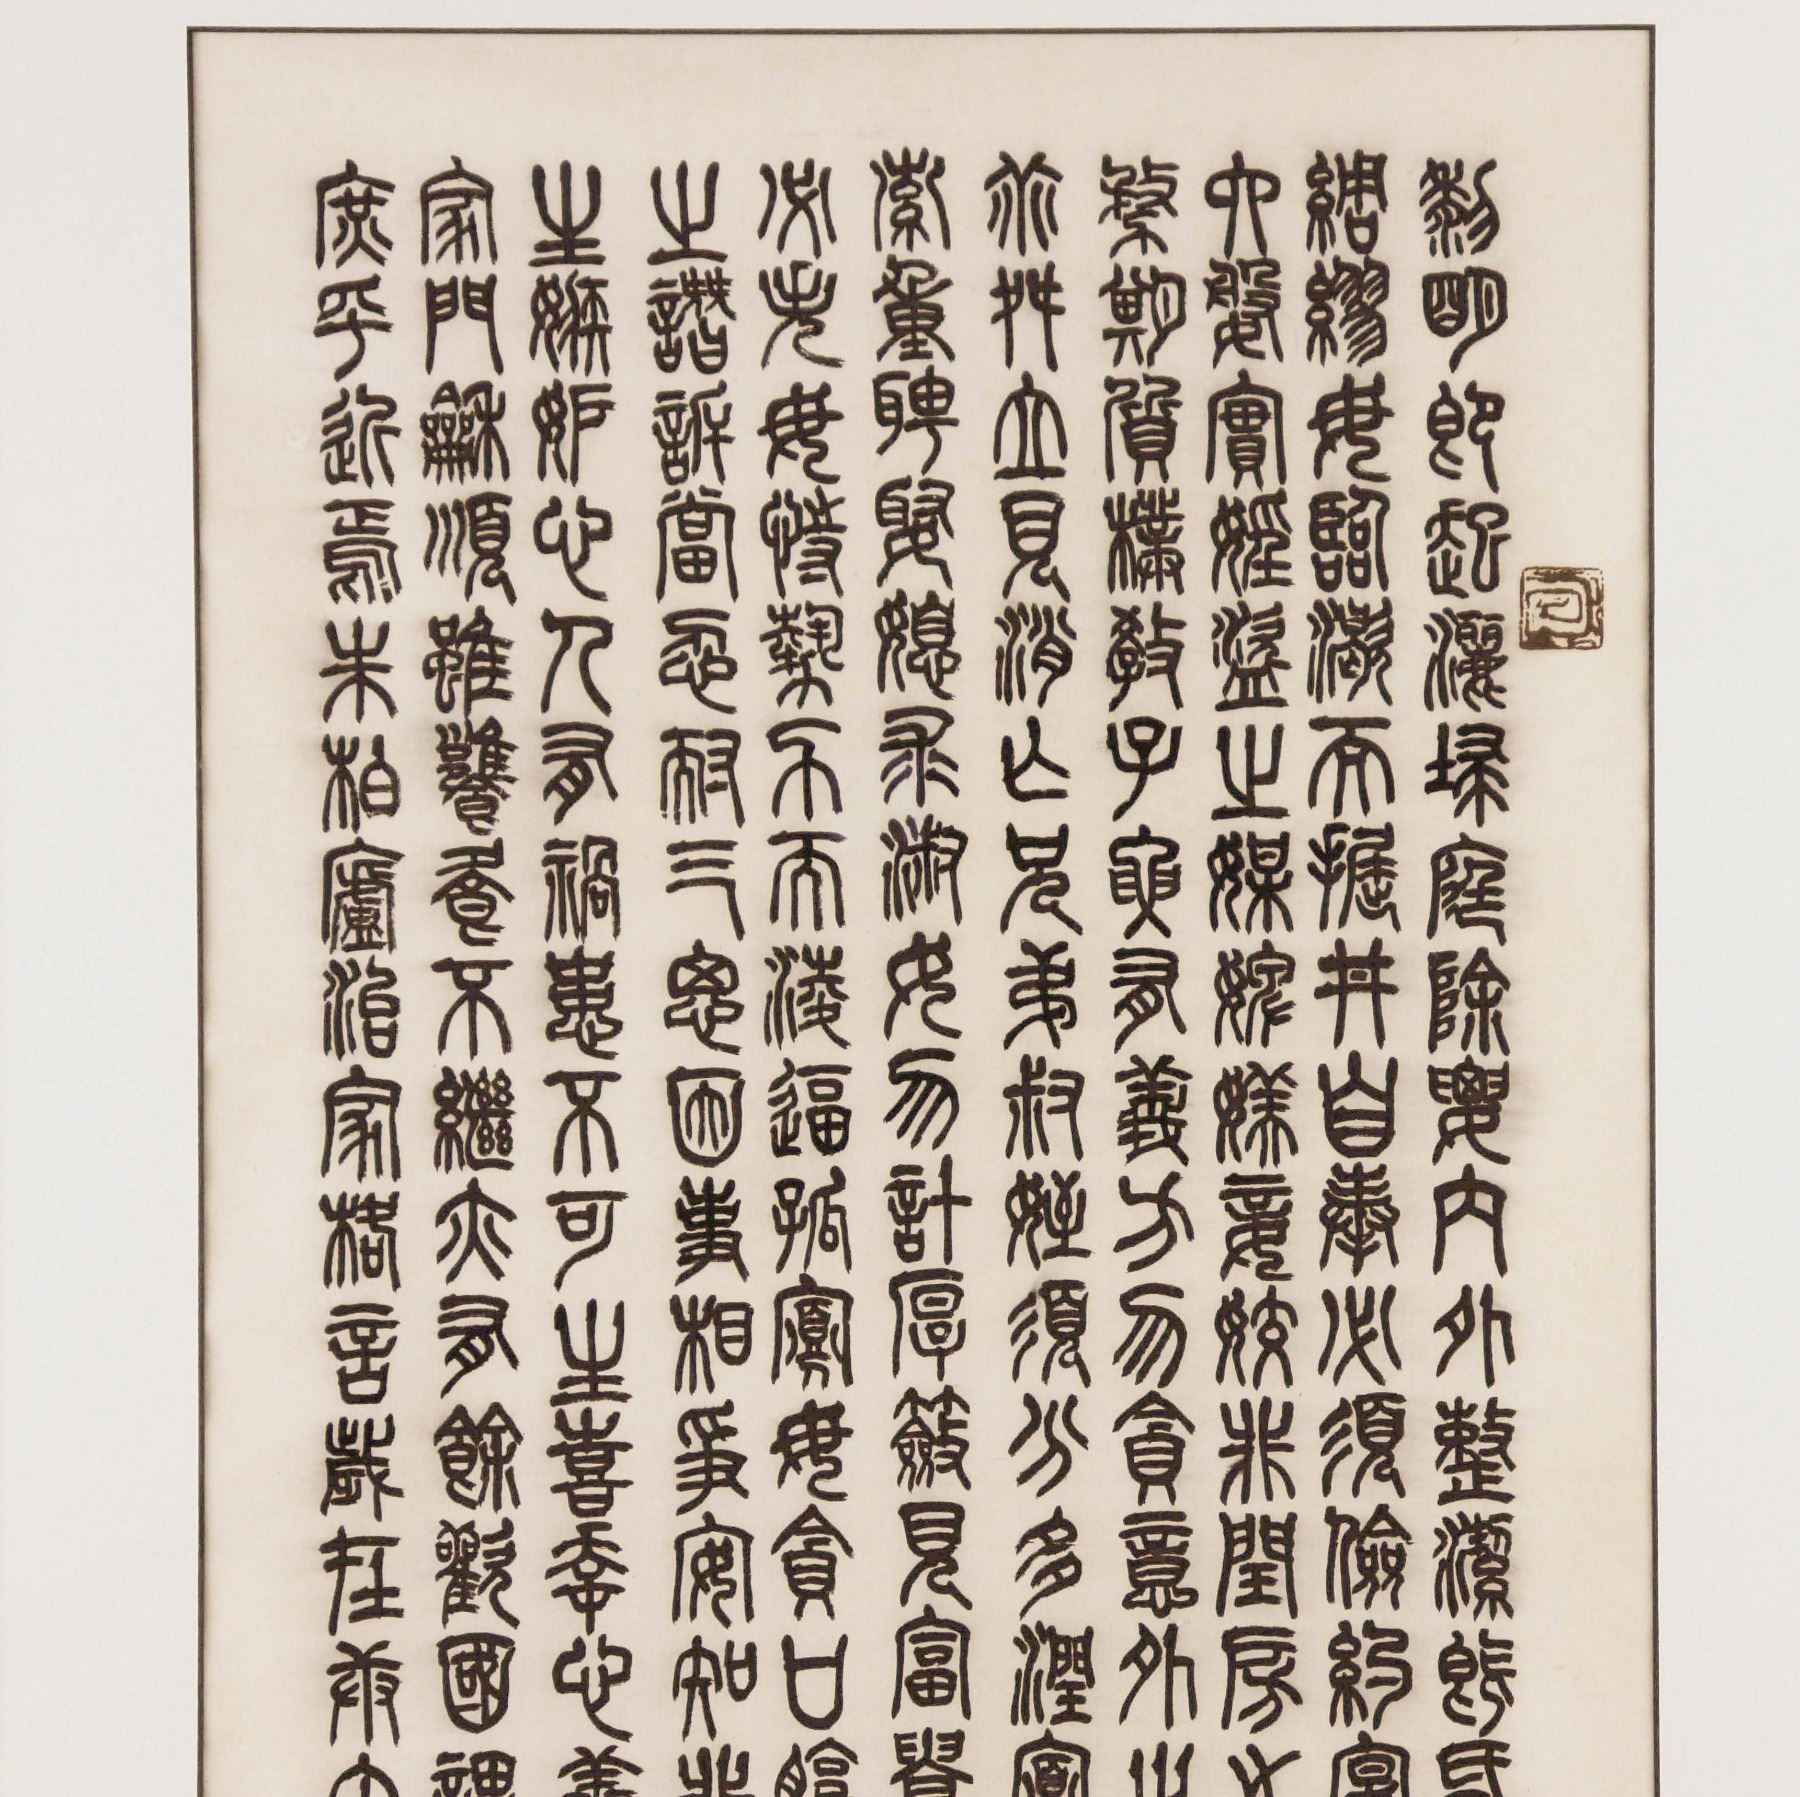 黎明即起灑埽庭除要內外整潔既昏
綢繆毋臨渴而掘井自奉必須儉約宴
六婆實婬盜之媒婢媄妾姣非閨房之
務期質樸教子要有義方勿貪意外之
乖舛立見消亡兄弟叔姪須分多潤寡
索重聘娶媳求淑女勿計厚籢見富貴
必失毋恃勢力而淩逼孤寡毋貪口
之譖訴當忍耐三思因事相爭安知非
生嫉妒心人有禍患不可生喜幸心善
家門龢順雖饔飧不繼亦有餘歡國課
庶乎近焉朱柏廬治家格言歲在庚